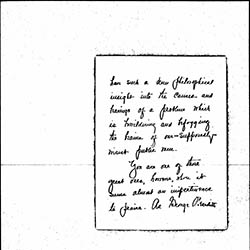 has such a keen philosophical
insight into the causes and
bearings of a problem which
is bewildering and befogging
the brains of our supposedly
wisest public men.
You are one of those
great ones, however, whom it
seems almost an impertinence
to praise. As George